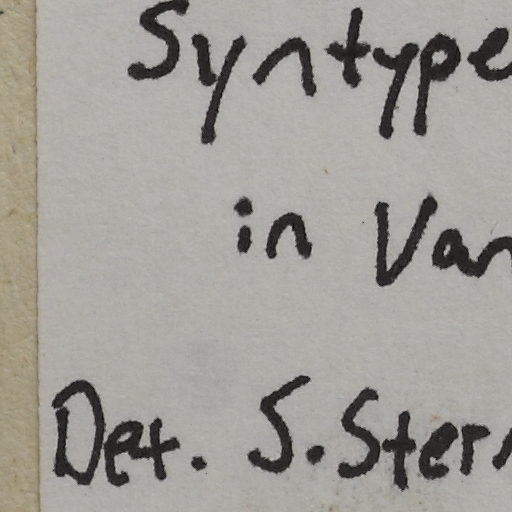 Syntype
in Van
Det. S. Stern